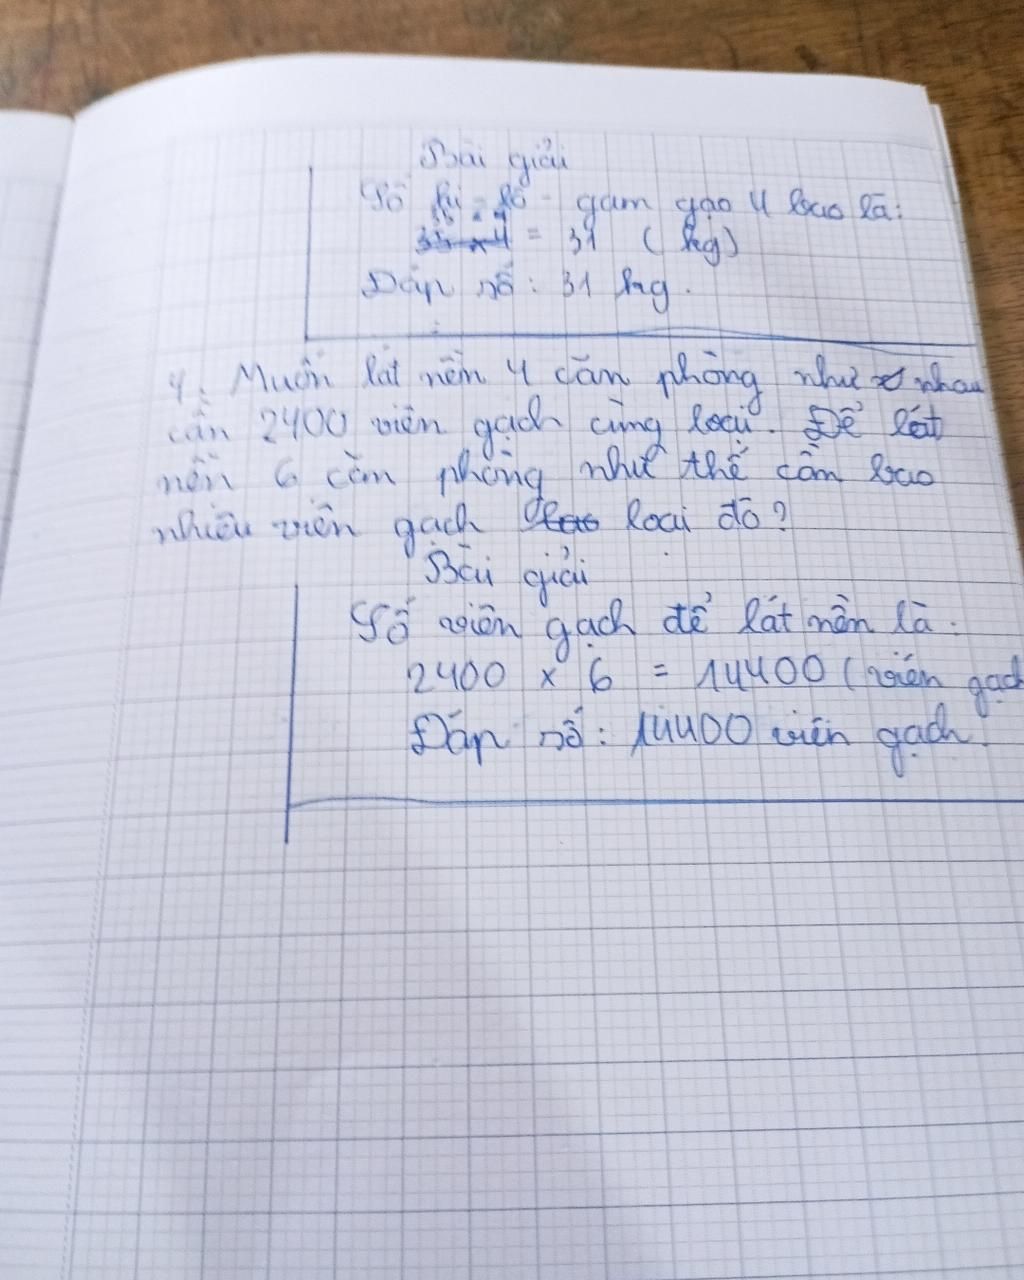 Bài giải
Số ki - lô - gam gạo 4 bao là:
35 x 4 = 31 (kg)
Đáp số: 31 kg.
4. Muốn lát nền 4 căn phòng như nhau
cần 2400 viên gạch cùng loại. Để lát
nền 6 căn phòng như thế cần bao
nhiêu viên gạch loại đó?
Bài giải
Số viên gạch để lát nền là:
2400 x 6 = 14400 (viên gạch
Đáp số: 14400 viên gạch.